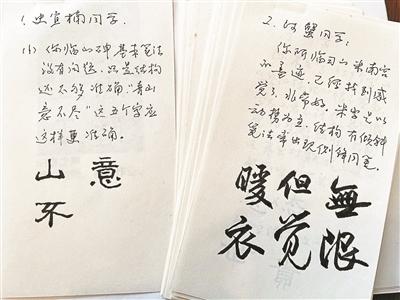 1. 史宜楠同学:
(1) 你临山碑基本笔法
没有问题,只是结构
还不够准确“青山
意不尽”这五个字应
这样更准确。
山 意
不
2. 何蟹同学:
你所临习米南宫
的墨迹,已经找到感
觉了,非常好。米字是以
动势为主,结构有倾斜
笔法常出现侧锋用笔。
暖但無
衣觉限